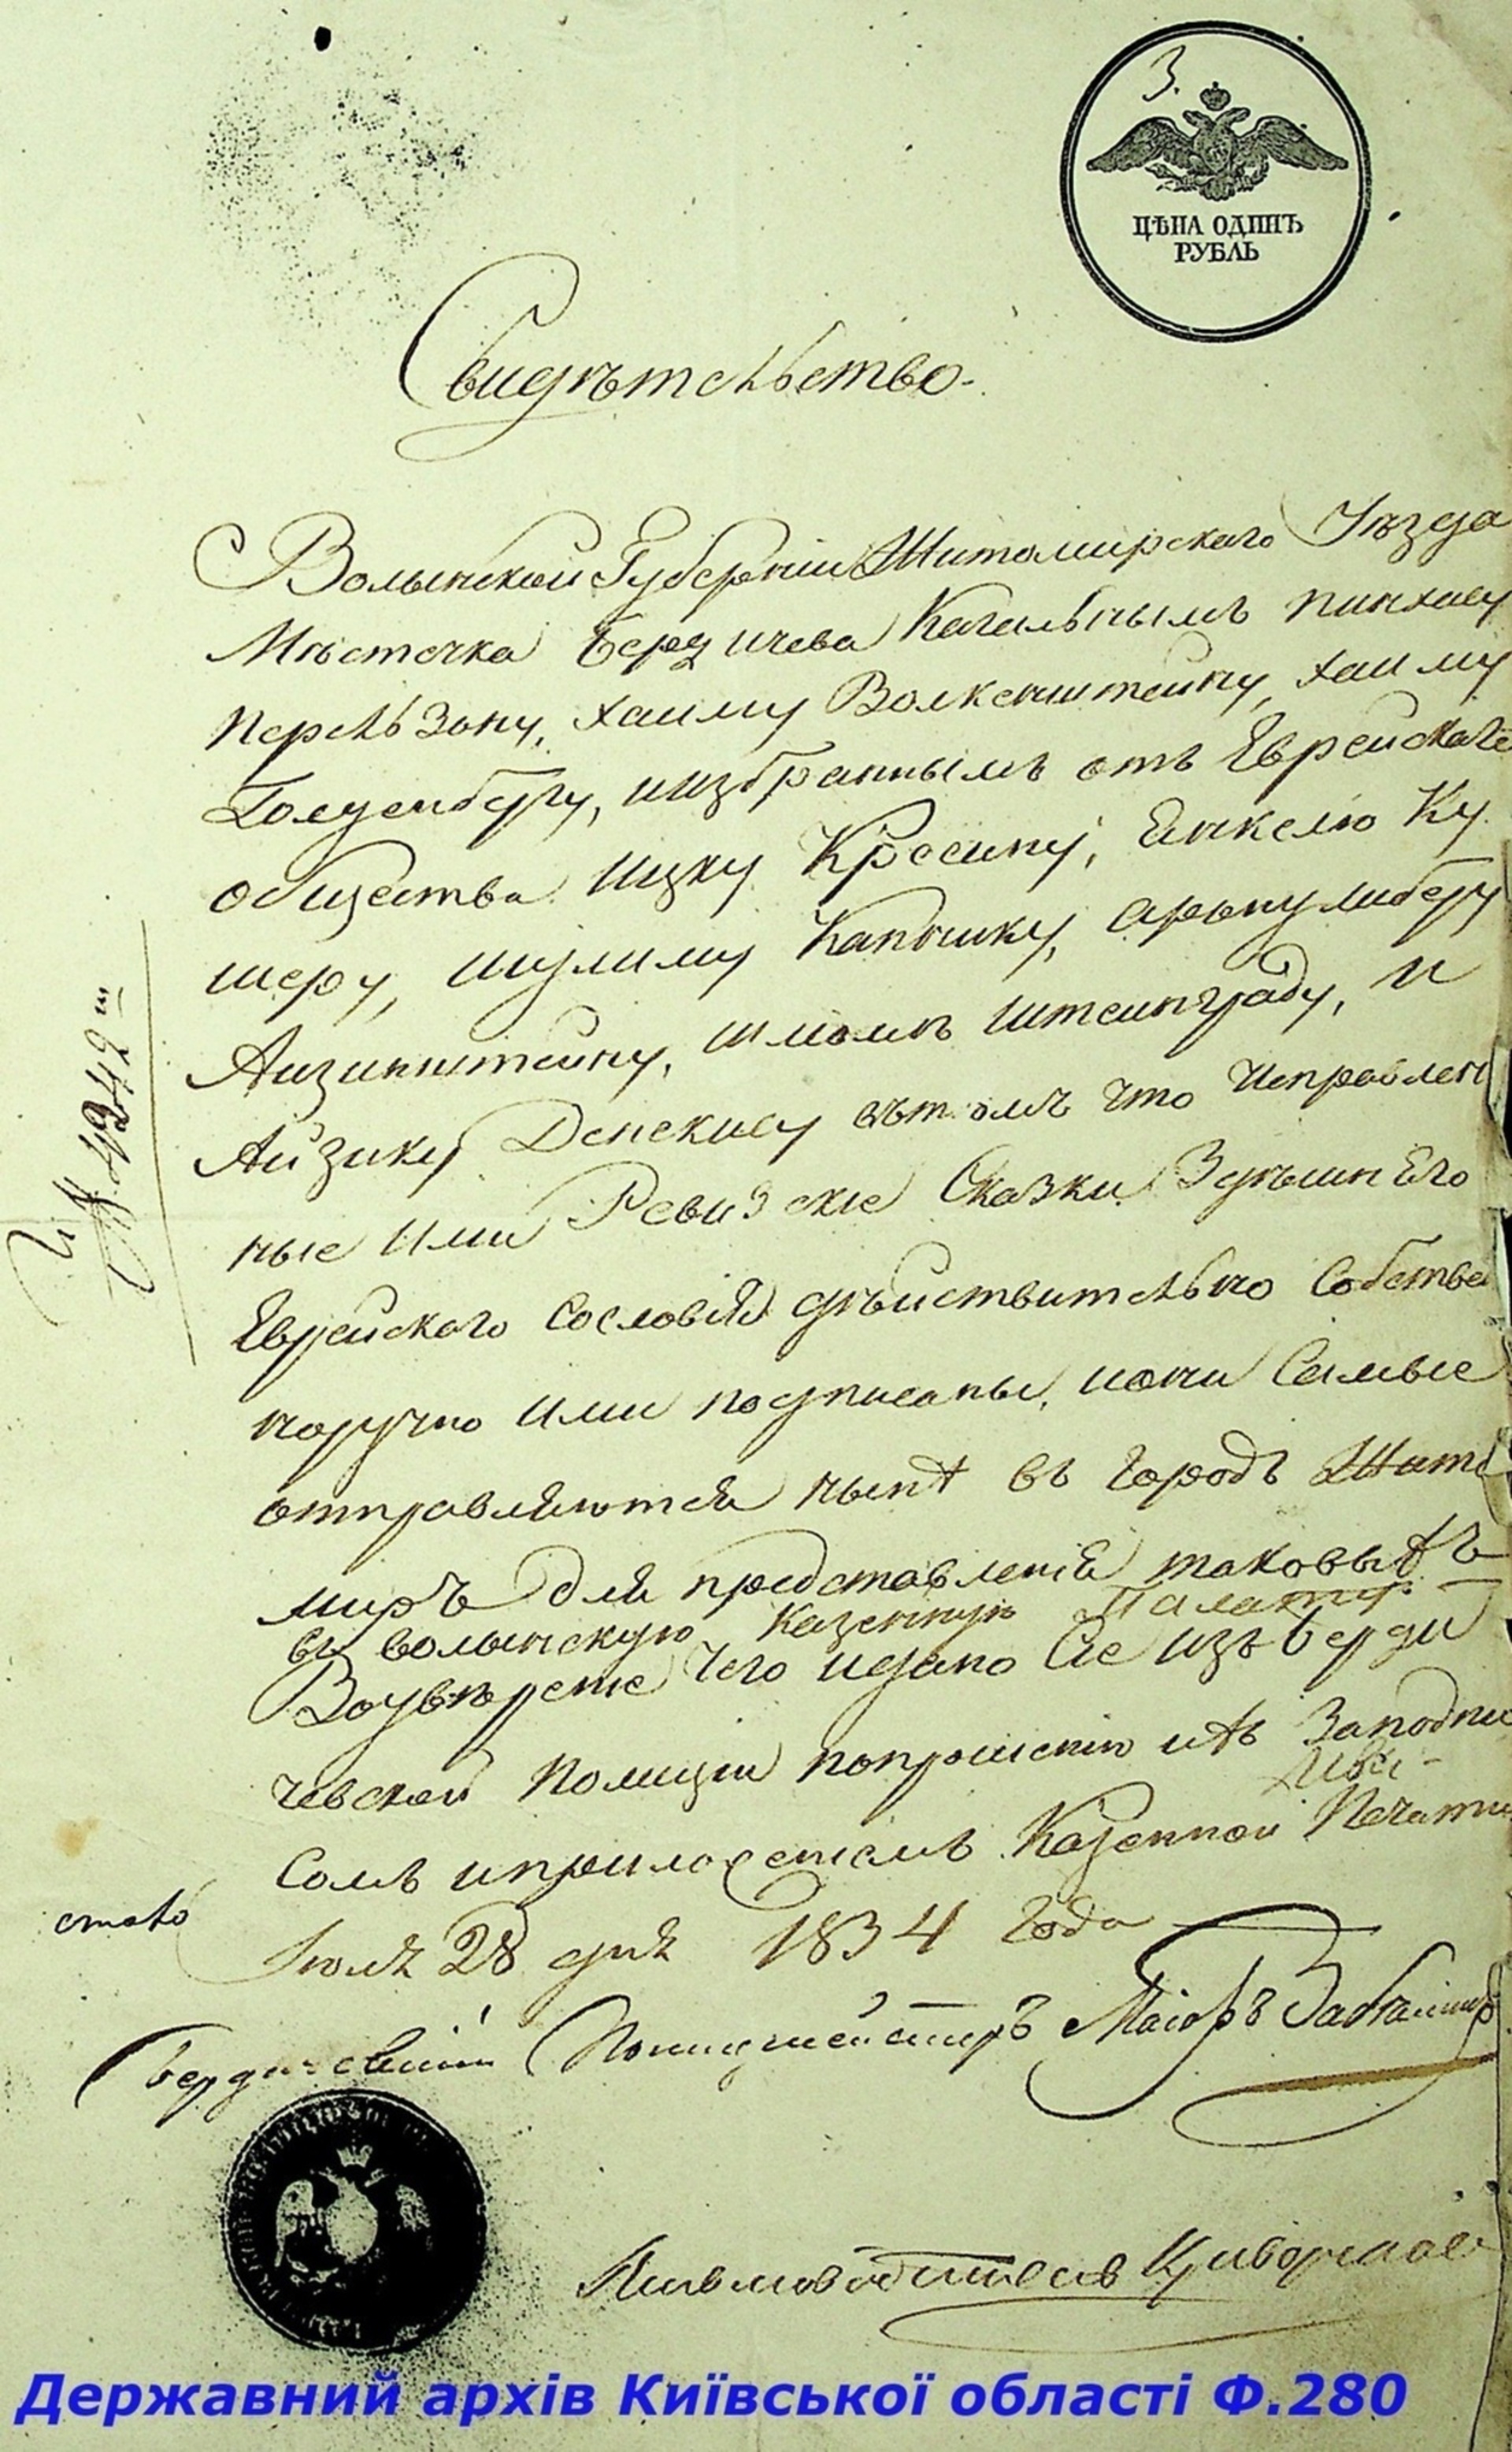 3.
ЦѢНА ОДИНЪ
РУБЛЬ
Свидѣтельство.
Волынской Губерніи Житомирского Уѣзда
Мѣстечка Бердичева Кагальнымъ Пинхасу
Перельзону, Хаиму Волкенштейну, Хаиму
Голденбергу, и избраннымъ отъ Еврейскаго
общества Ицку Кросину, Енкелю Ку
шеру, Шулиму Капнику, Арону Либеру
Аизинштейну, Шломѣ Штеинграду, и
Айзику Денекису вътомъ что Исправлен
ные Ими Ревизские Сказки Здѣшнего
Еврейского Сословія дѣйствительно Собствен
норучно Ими подписаны, иони Самые
отправляются нынѣ въ городъ Жито
миръ для представленія таковыхъ
въ волынскую Казенную Палату
Воувѣрение Чего идано Сие изъ Берди
чевской Полиціи попрошению ихъ Заподпи
Сомъ иприложениемъ Казенной Печати
Іюля 28 дня 1834 года
Бердичевскій Полицмейстеръ Маіоръ
Письмоводитель
№ 4242
Державний архів Київської області Ф.280